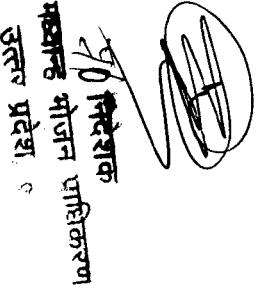 निदेशक
मध्यान्ह भोजन प्राधिकरण
उत्तर प्रदेश